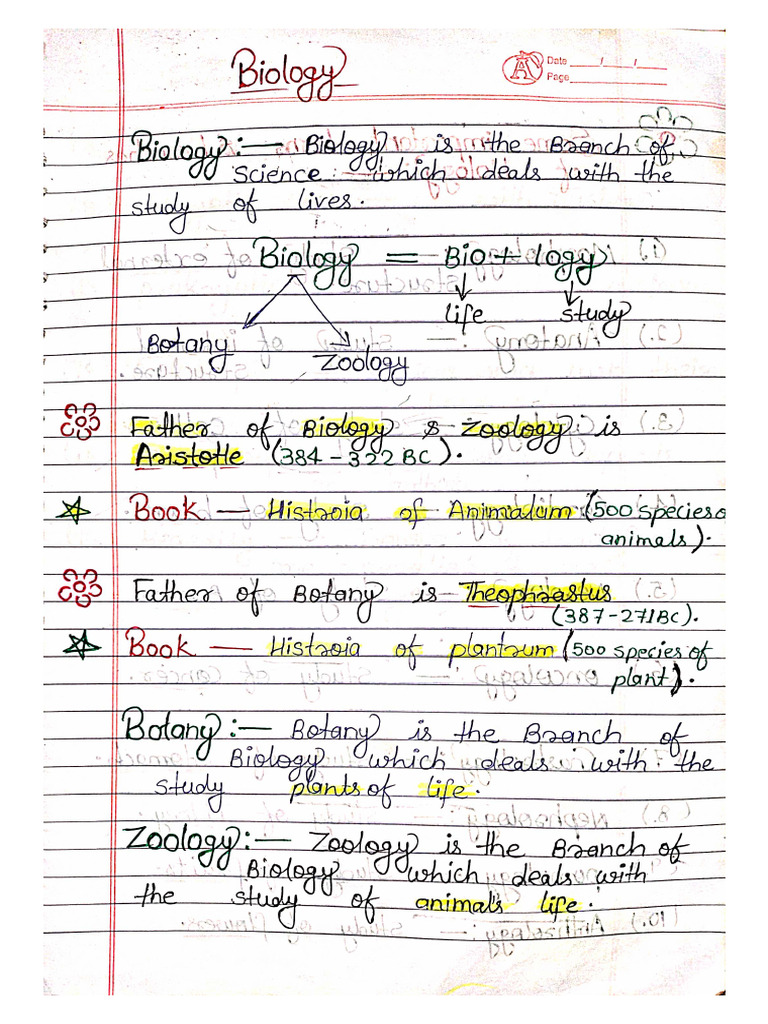 Biology
Date ___/___/___
Page
Biology :— Biology is the Branch of
Science which deals with the
study of lives.
Biology = Bio + logy
life study
Botany
Zoology
Father of Biology & Zoology is
Aristotle (384 – 322 BC).
Book — Histroia of Animalum (500 species o
animals).
Father of Botany is Theophrastus
(387 – 271BC).
Book — Histroia of plantrum (500 species of
plant).
Botany :— Botany is the Branch of
Biology which deals with the
study plants of life.
Zoology :— Zoology is the Branch of
Biology which deals with
the study of animals life.